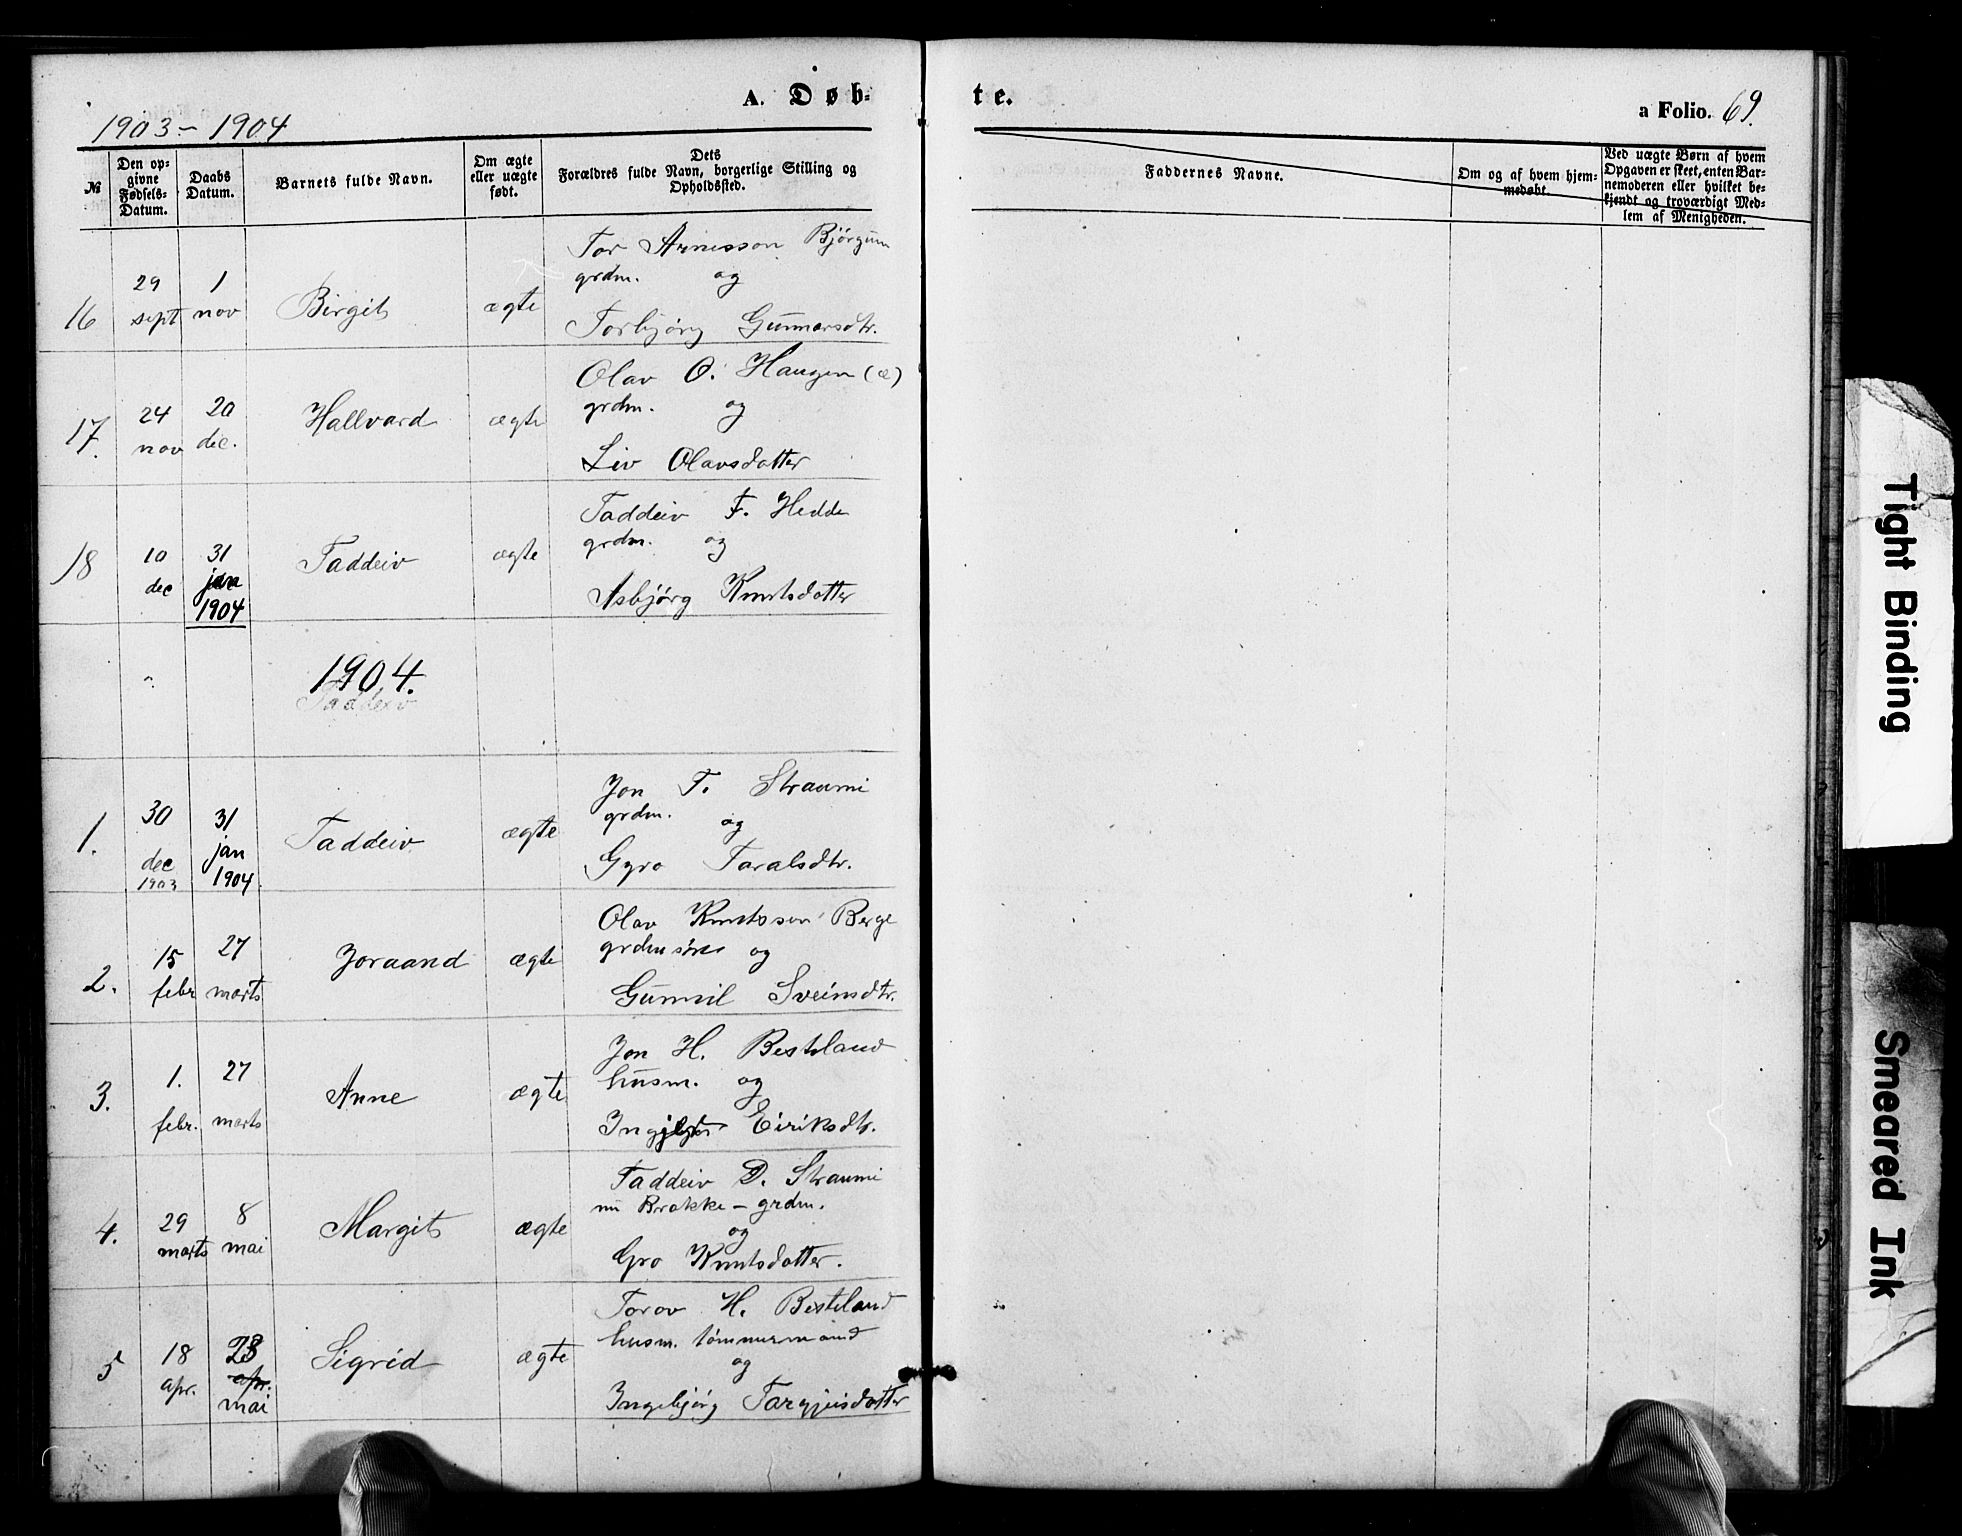 A. Døb-
te.
a Folio. 69.
1903 - 1904
№
Den op-
givne
Fødsels-
Datum.
Daabs
Datum.
Barnets fulde Navn.
Om ægte
eller uægte
født.
Dets
Forældres fulde Navn, borgerlige Stilling og
Opholdssted.
Faddernes Navne.
Om og af hvem hjem-
medøbt.
Ved uægte Børn af hvem
Opgaven er skeet, enten Bar-
nemoderen eller hvilket be-
kjendt og troværdigt Med-
lem af Menigheden.
Tor Arnesson Bjørgum
29 1 grdm. og
16 sept nov Birgit ægte
Torbjørg Gunnarsdtr.
Olav O. Haugen (æ)
24 20 grdm. og
17. nov dec. Hallvard ægte
Liv Olavsdotter
Taddeiv F. Hedde
10 31 grdm. og
18 dec jan Taddeiv ægte
1904 Asbjørg Knutsdotter
1904.
Taddeiv
Jon T. Straumi
30 31 grdm. og
1. dec jan Taddeiv ægte
1903 1904. Gyro Taralsdtr.
Olav Knutsson Berge
15 27 grdmsøn og
2. febr marts Joraand ægte
Gunnil Sveinsdtr.
Jon H. Besteland
1. 27 husm. og
3. febr. marts Anne ægte
Eiriksdtr.
Taddeiv D. Straumi
nu Brokke - grdm.
29 8 og
4. marts mai Margit ægte
Gro Knutsdotter.
Torov H. Besteland
husm. tømmermand
18 23 og
5 apr. apr. Sigrid ægte
mai
Ingebjørg Targjeisdotter
Tight Binding
Smeared Ink